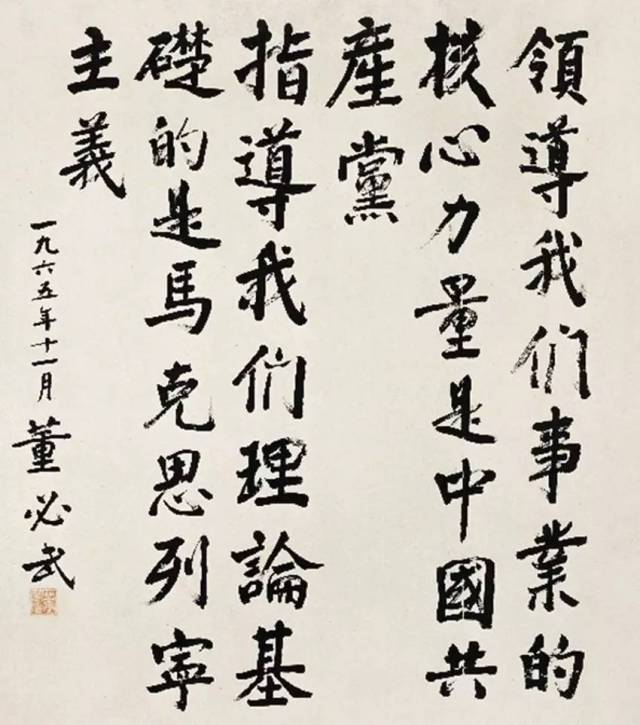 領導我们事業的
核心力量是中國共
産黨
指導我们理論基
礎的是馬克思列寧
主義
一九六五年十一月
董必武